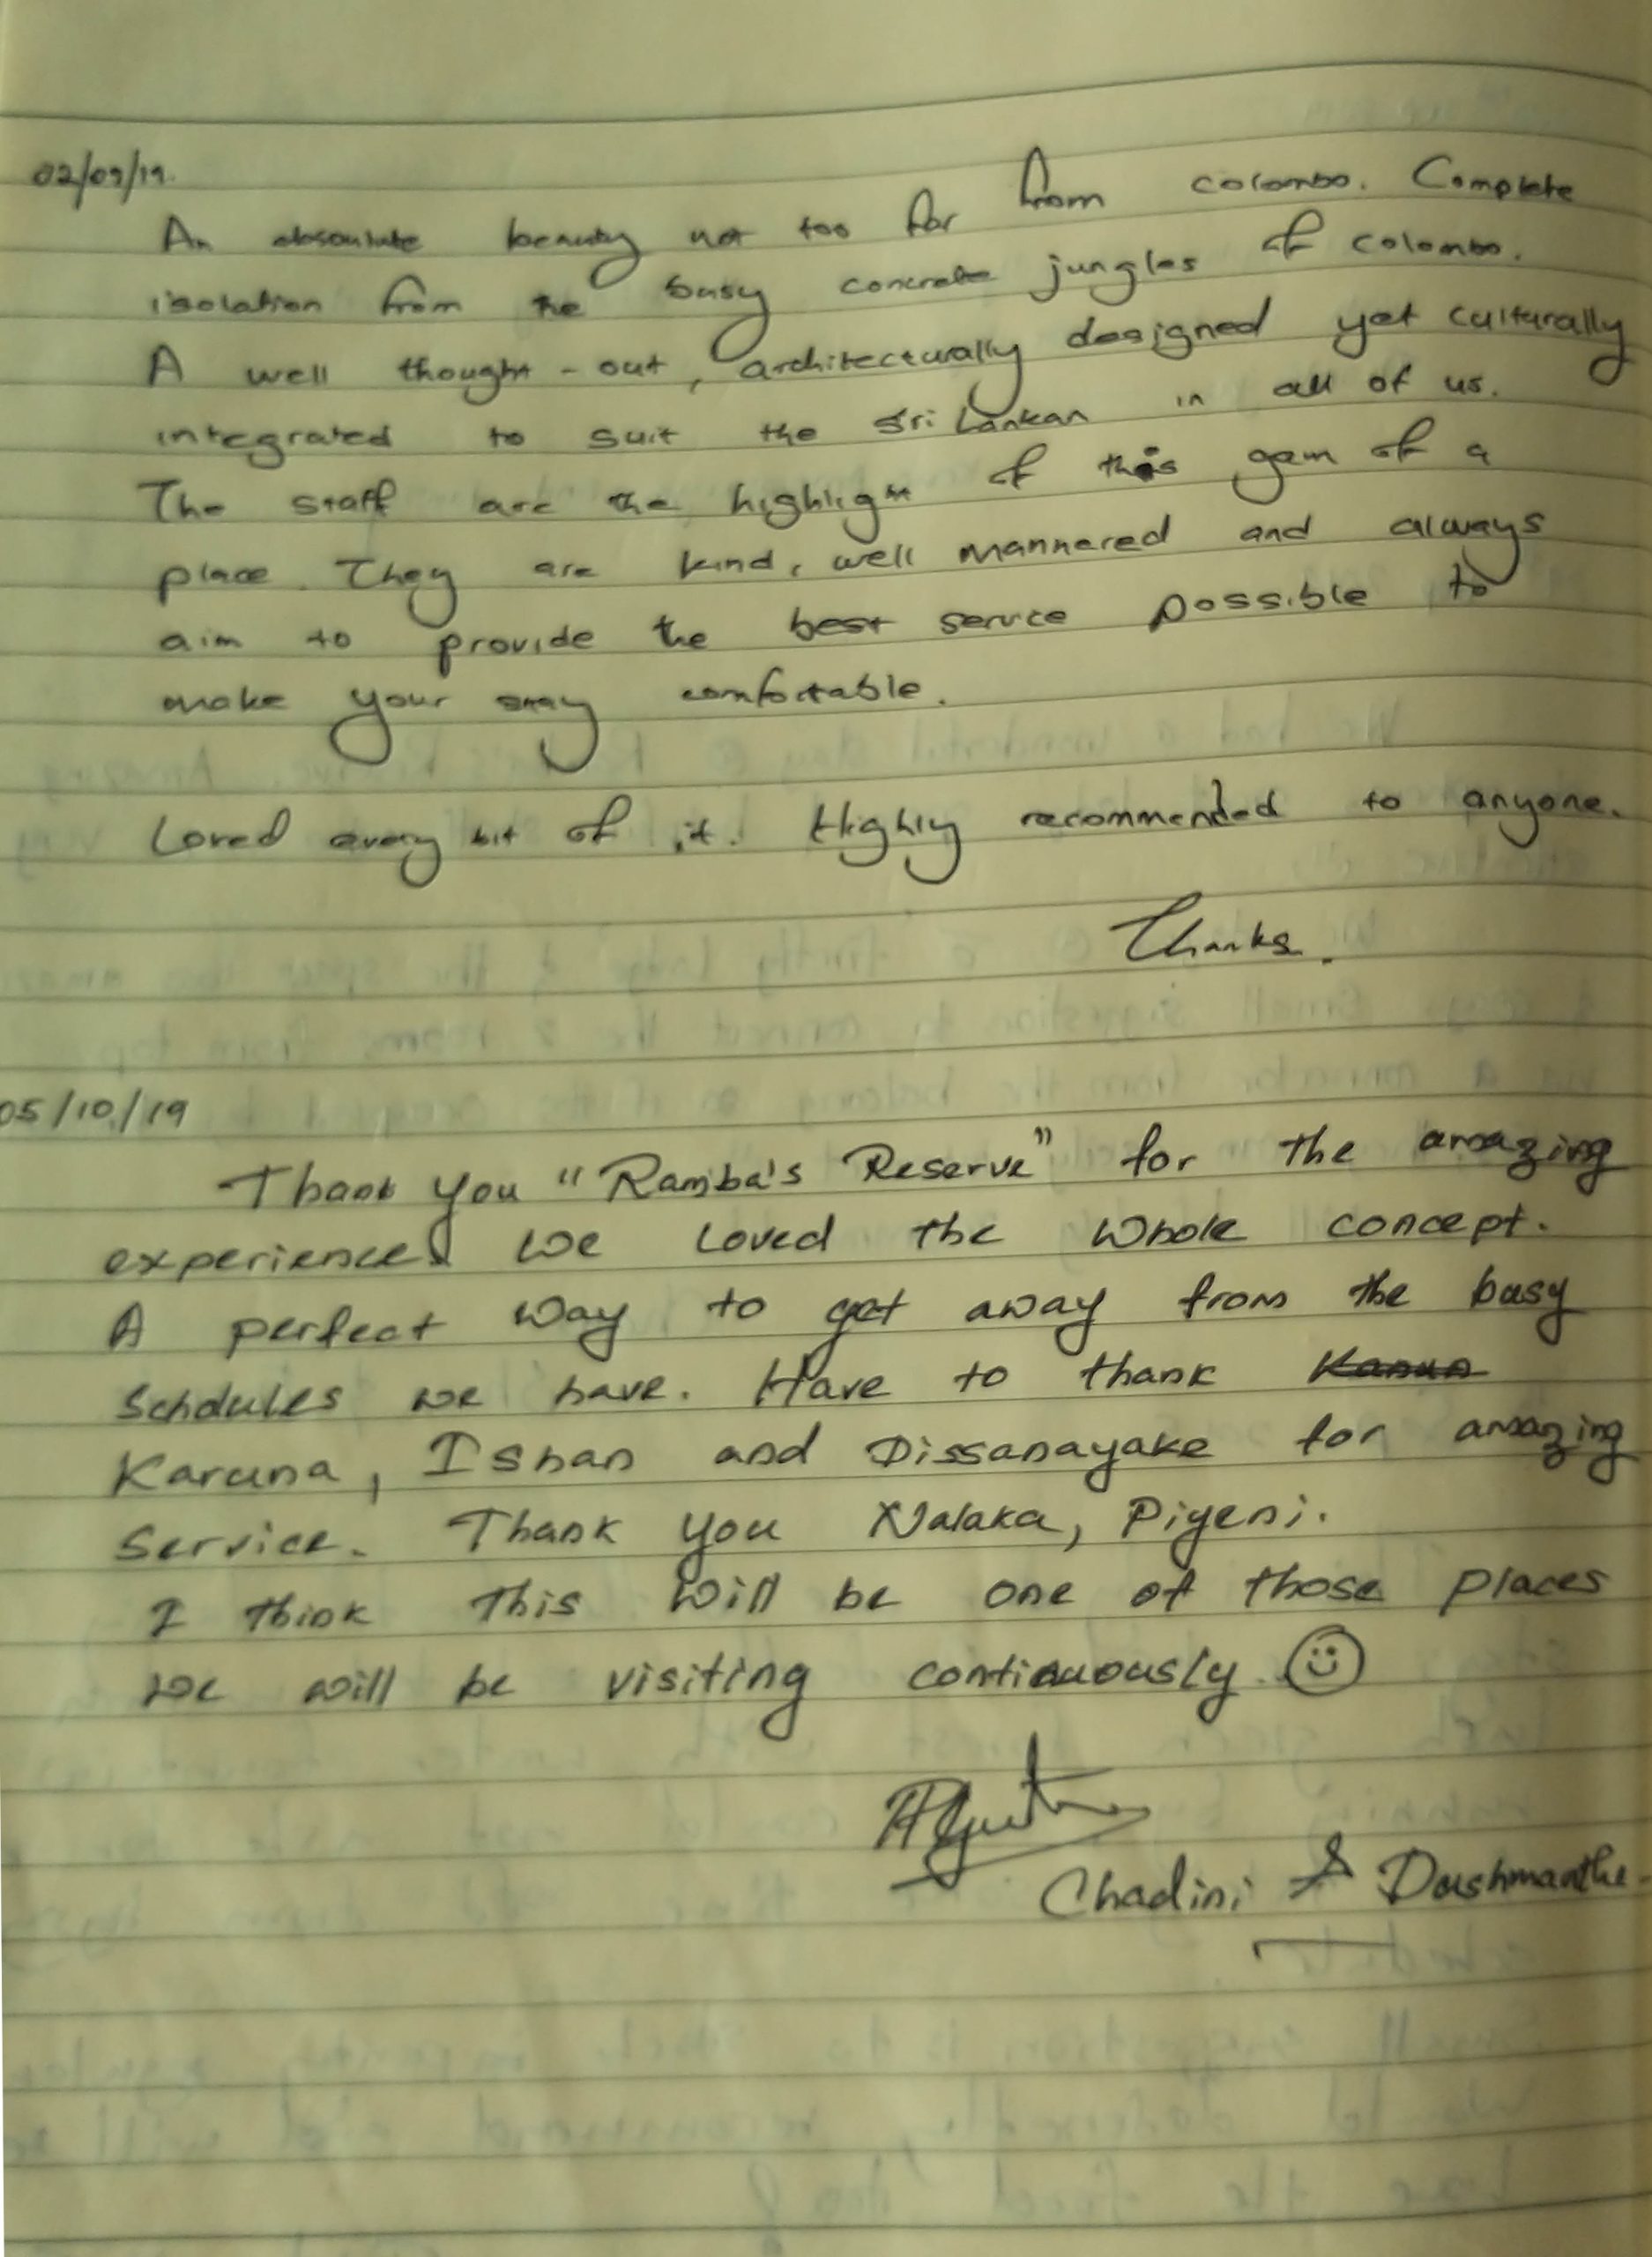 02/09/19.
An absoulute beauty not too far from colombo. Complete
isolation from the busy concrete jungles of colombo.
A well thought-out, architecturally designed yet culturally
integrated to suit the Sri Lankan in all of us.
The staff are the highlight of this gem of a
place. They are kind, well mannered and always
aim to provide the best service possible to
make your stay comfortable.
Loved every bit of it. Highly recommended to anyone.
Thanks.
05/10/19
Thank you "Ramba's Reserve" for the amazing
experience we loved the whole concept.
A perfect way to get away from the busy
schdules we have. Have to thank
Karuna, Ishan and Dissanayake for amazing
service. Thank you Nalaka, Piyeni.
I think this will be one of those places
we will be visiting continuously ☺
Chadini & Dashmanthe.